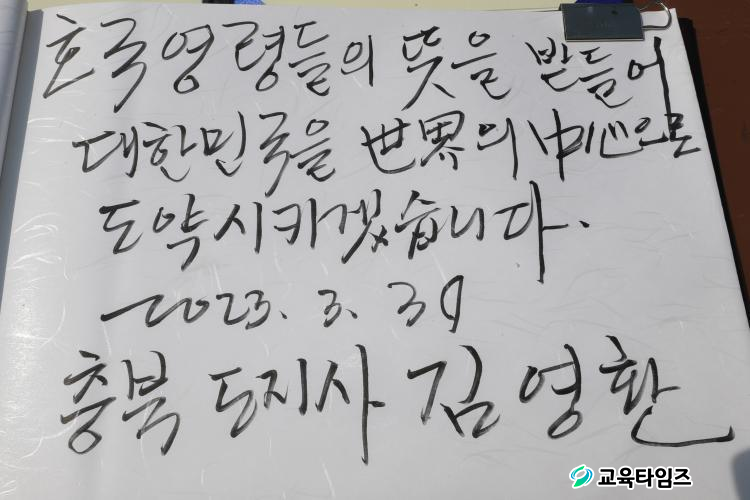 호국영령들의 뜻을 받들어
대한민국을 世界의 中心으로
도약시키겠습니다.
2023. 3. 30
충북 도지사 김영환
교육타임즈